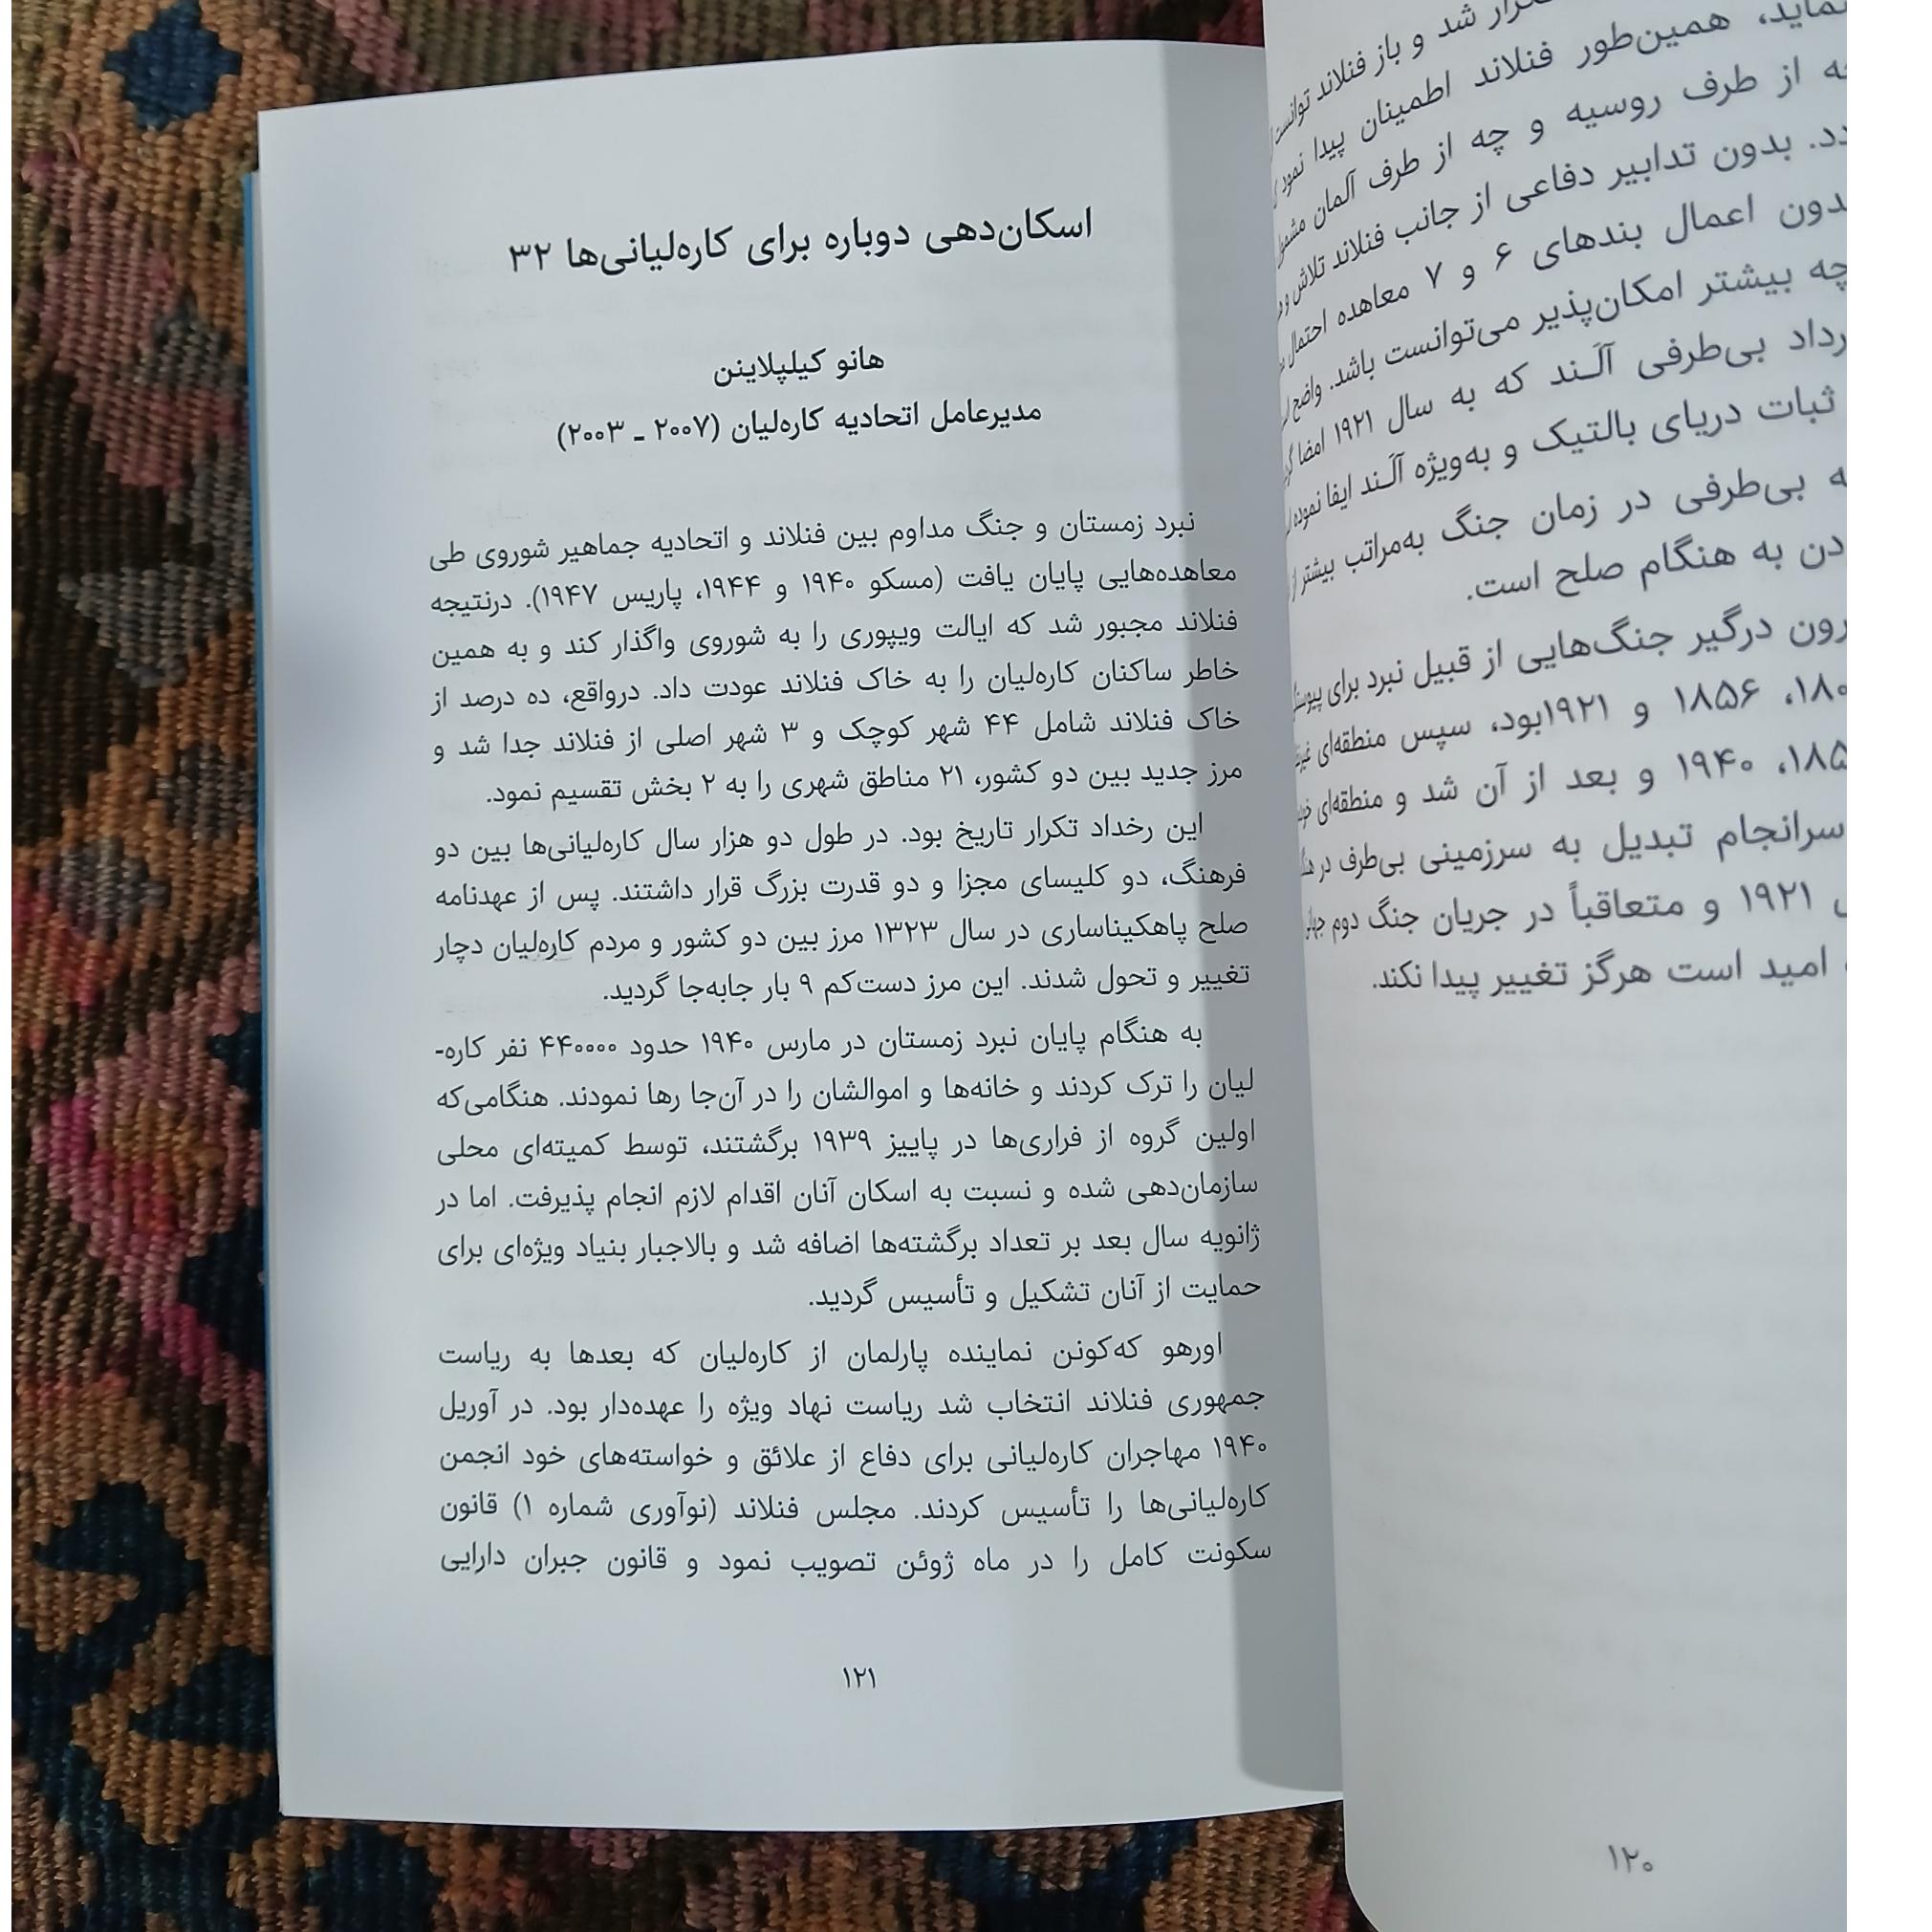 تکرار شد و باز فنلاند توانست
نماید، همین‌طور فنلاند اطمینان پیدا نمود
چه از طرف روسیه و چه از طرف آلمان
بدون تدابیر دفاعی از جانب فنلاند تلاش و
بدون اعمال بندهای ۶ و ۷ معاهده احتمال
چه بیشتر امکان‌پذیر می‌توانست باشد. واضح
بی‌طرفی آلَند که به سال ۱۹۲۱ امضا
ثبات دریای بالتیک و به‌ویژه آلَند ایفا نموده
بی‌طرفی در زمان جنگ به‌مراتب بیشتر از
به هنگام صلح است.
درگیر جنگ‌هایی از قبیل نبرد برای
۱۸۵۶ و ۱۹۲۱بود، سپس منطقه‌ای
۱۹۴۰ و بعد از آن شد و منطقه‌ای
سرانجام تبدیل به سرزمینی بی‌طرف در
۱۹۲۱ و متعاقباً در جریان جنگ دوم
امید است هرگز تغییر پیدا نکند.
۱۲۰
اسکان‌دهی دوباره برای کاره‌لیانی‌ها ۳۲
هانو کیلپلاینن
مدیرعامل اتحادیه کاره‌لیان (۲۰۰۷ ـ ۲۰۰۳)
نبرد زمستان و جنگ مداوم بین فنلاند و اتحادیه جماهیر شوروی طی
معاهده‌هایی پایان یافت (مسکو ۱۹۴۰ و ۱۹۴۴، پاریس ۱۹۴۷). درنتیجه
فنلاند مجبور شد که ایالت ویپوری را به شوروی واگذار کند و به همین
خاطر ساکنان کاره‌لیان را به خاک فنلاند عودت داد. درواقع، ده درصد از
خاک فنلاند شامل ۴۴ شهر کوچک و ۳ شهر اصلی از فنلاند جدا شد و
مرز جدید بین دو کشور، ۲۱ مناطق شهری را به ۲ بخش تقسیم نمود.
این رخداد تکرار تاریخ بود. در طول دو هزار سال کاره‌لیانی‌ها بین دو
فرهنگ، دو کلیسای مجزا و دو قدرت بزرگ قرار داشتند. پس از عهدنامه
صلح پاهکیناساری در سال ۱۳۲۳ مرز بین دو کشور و مردم کاره‌لیان دچار
تغییر و تحول شدند. این مرز دست‌کم ۹ بار جابه‌جا گردید.
به هنگام پایان نبرد زمستان در مارس ۱۹۴۰ حدود ۴۴۰۰۰۰ نفر کاره-
لیان را ترک کردند و خانه‌ها و اموالشان را در آن‌جا رها نمودند. هنگامی‌که
اولین گروه از فراری‌ها در پاییز ۱۹۳۹ برگشتند، توسط کمیته‌ای محلی
سازمان‌دهی شده و نسبت به اسکان آنان اقدام لازم انجام پذیرفت. اما در
ژانویه سال بعد بر تعداد برگشته‌ها اضافه شد و بالاجبار بنیاد ویژه‌ای برای
حمایت از آنان تشکیل و تأسیس گردید.
اورهو که‌کونن نماینده پارلمان از کاره‌لیان که بعدها به ریاست
جمهوری فنلاند انتخاب شد ریاست نهاد ویژه را عهده‌دار بود. در آوریل
۱۹۴۰ مهاجران کاره‌لیانی برای دفاع از علائق و خواسته‌های خود انجمن
کاره‌لیانی‌ها را تأسیس کردند. مجلس فنلاند (نوآوری شماره ۱) قانون
سکونت کامل را در ماه ژوئن تصویب نمود و قانون جبران دارایی
۱۲۱